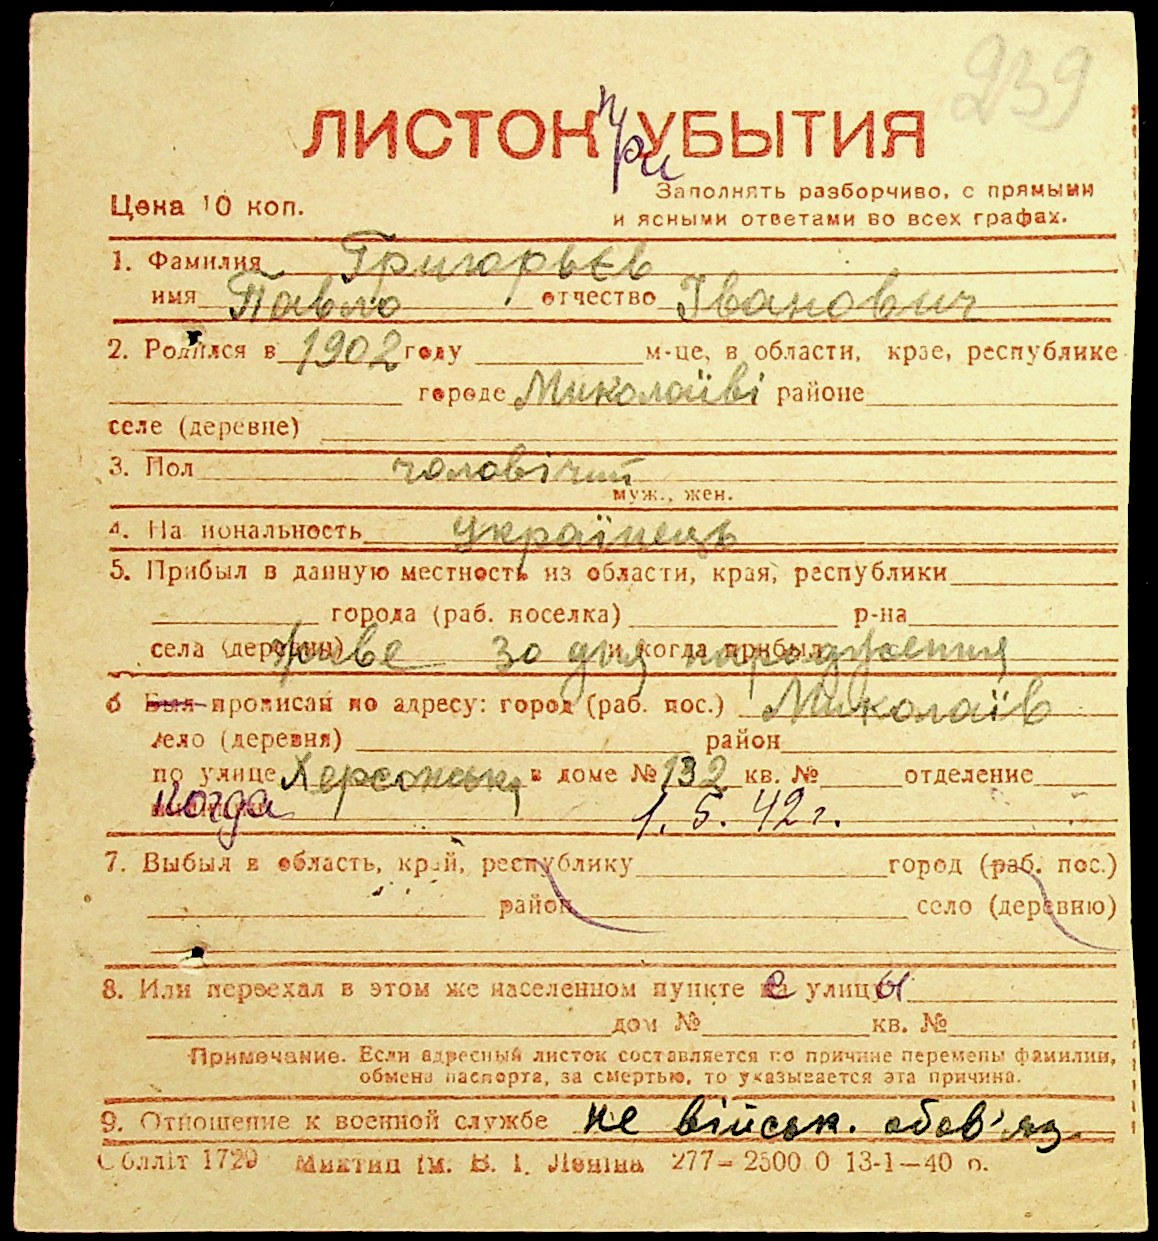 239
ЛИСТОК при УБЫТИЯ
Цена 10 коп.
Заполнять разборчиво, с прямыми
и ясными ответами во всех графах.
1. Фамилия Григорьєв
имя Павло отчество Іванович
2. Родился в 1902 году м-це, в области, крае, республике
городе Миколаїві районе
селе (деревне)
3. Пол чоловічий
муж., жен.
4. Национальность українець
5. Прибыл в данную местность из области, края, республики
города (раб. поселка) р-на
села (деревни) живе зо дня народження и когда прибыл
6 Был прописан по адресу: город (раб. пос.) Миколаїв
село (деревня) район
по улице Херсонськ в доме № 132 кв. № отделение
Когда 1. 5. 42 г.
7. Выбыл в область, край, республику город (раб. пос.)
район село (деревню)
8. Или переехал в этом же населенном пункте с улицы
дом № кв. №
Примечание. Если адресный листок составляется по причине перемены фамилии,
обмена паспорта, за смертью, то указывается эта причина.
9. Отношение к военной службе не військ. обов'яз.
Облліт 1720 Миктип ім. В. І. Леніна 277–2500 0 13-1–40 р.